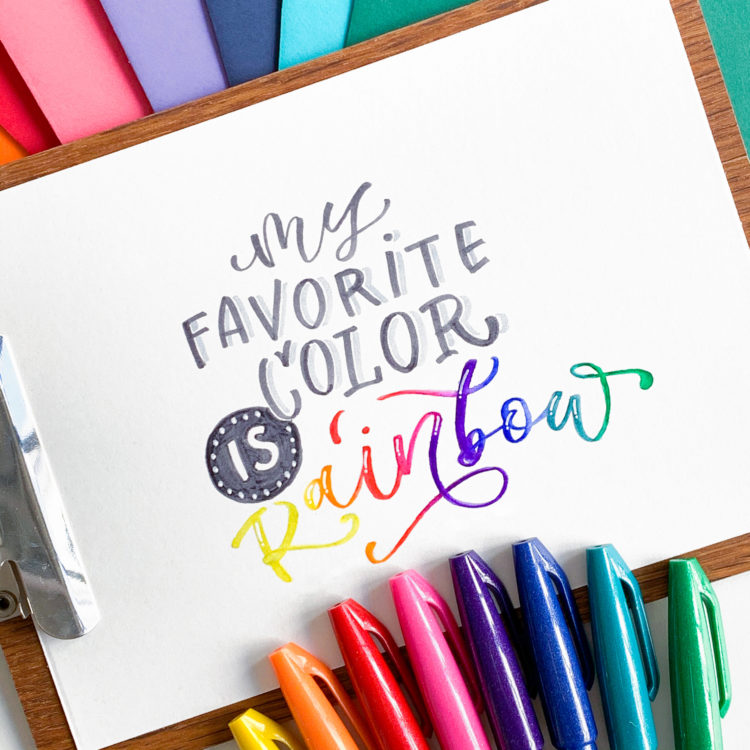 my
FAVORiTE
COLOR
IS
Rainbow